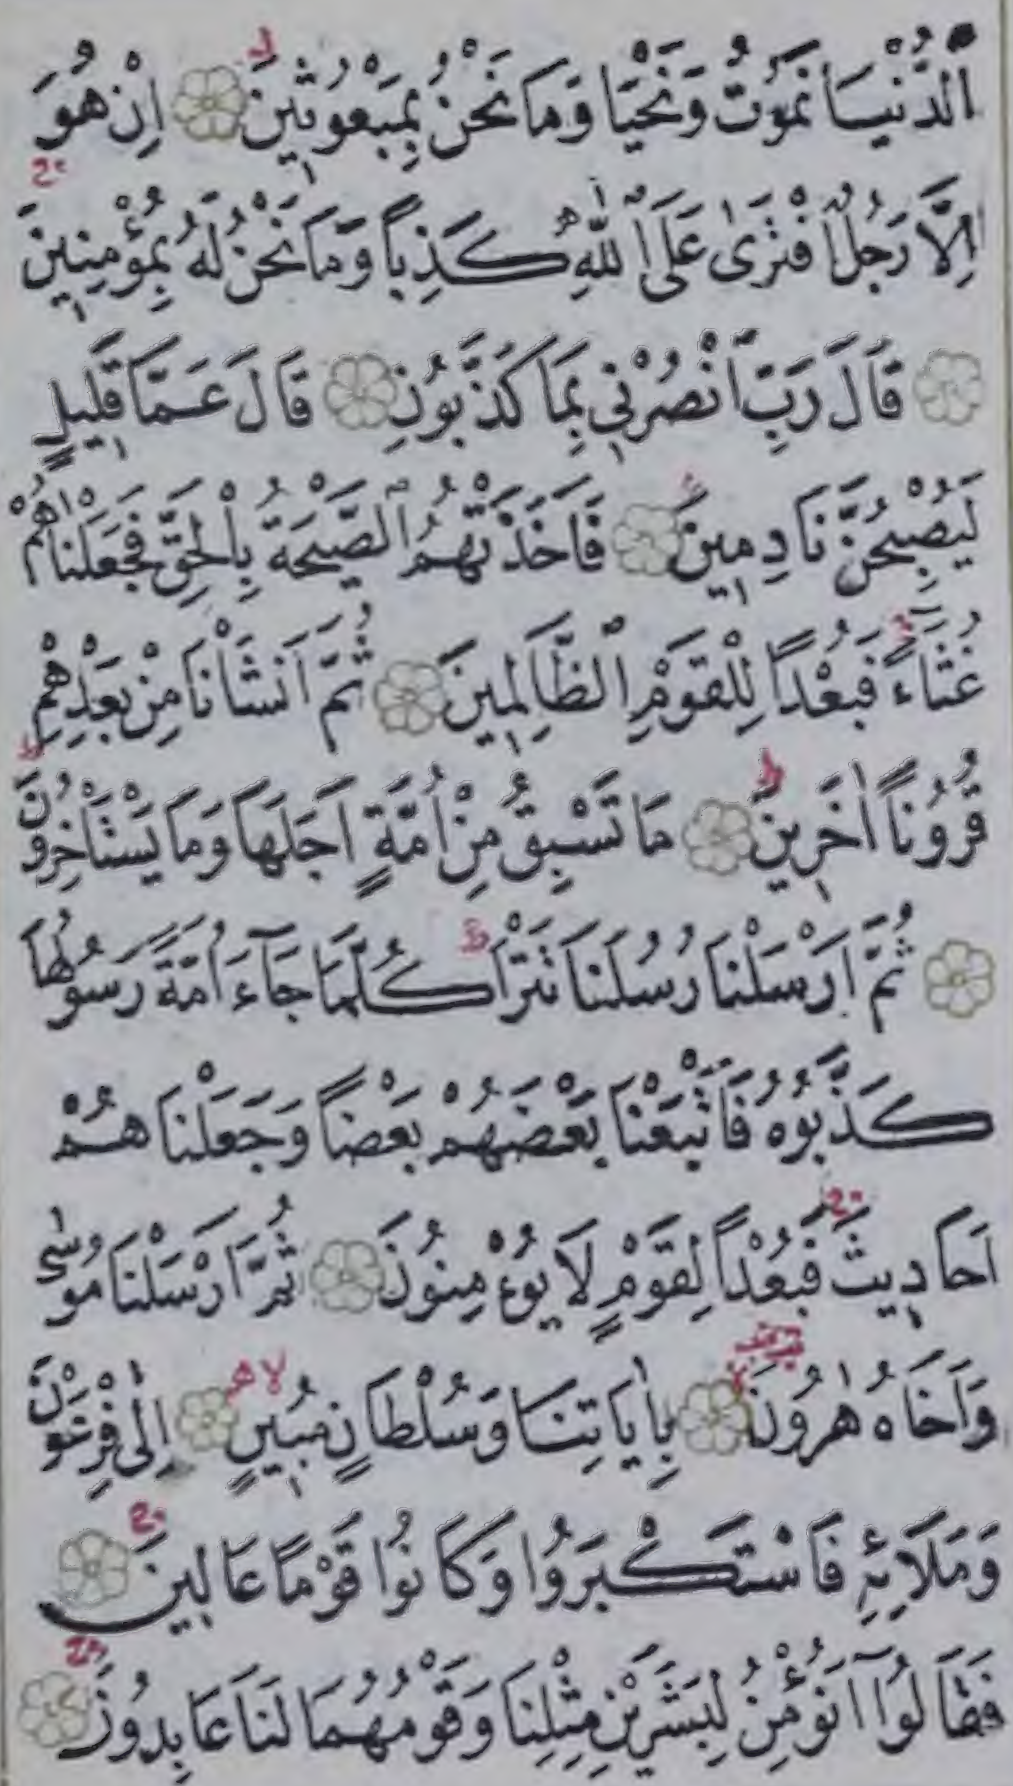 اَلدُّنْيَا نَمُوتُ وَنَحْيَا وَمَا نَحْنُ بِمَبْعُوثِينَ اِنْ هُوَ
اِلَّا رَجُلٌ افْتَرٰى عَلَى اللّٰهِ كَذِباً وَمَا نَحْنُ لَهُ بِمُؤْمِنِينَ
قَالَ رَبِّ انْصُرْنِي بِمَا كَذَّبُونِ قَالَ عَمَّا قَلِيلٍ
لَيُصْبِحُنَّ نَادِمِينَ فَاَخَذَتْهُمُ الصَّيْحَةُ بِالْحَقِّ فَجَعَلْنَاهُمْ
غُثَاءً فَبُعْداً لِلْقَوْمِ الظَّالِمِينَ ثُمَّ اَنْشَأْنَا مِنْ بَعْدِهِمْ
قُرُوناً اٰخَرِينَ مَا تَسْبِقُ مِنْ اُمَّةٍ اَجَلَهَا وَمَا يَسْتَأْخِرُونَ
ثُمَّ اَرْسَلْنَا رُسُلَنَا تَتْرَا كُلَّمَا جَٓاءَ اُمَّةً رَسُولُهَا
كَذَّبُوهُ فَاَتْبَعْنَا بَعْضَهُمْ بَعْضاً وَجَعَلْنَاهُمْ
اَحَادِيثَ فَبُعْداً لِقَوْمٍ لَا يُؤْمِنُونَ ثُمَّ اَرْسَلْنَا مُوسٰى
وَاَخَاهُ هٰرُونَ بِاٰيَاتِنَا وَسُلْطَانٍ مُبِينٍ اِلٰى فِرْعَوْنَ
وَمَلَا۬ئِهِ۪ فَاسْتَكْبَرُوا وَكَانُوا قَوْماً عَالِينَ
فَقَالُٓوا اَنُؤْمِنُ لِبَشَرَيْنِ مِثْلِنَا وَقَوْمُهُمَا لَنَا عَابِدُونَ